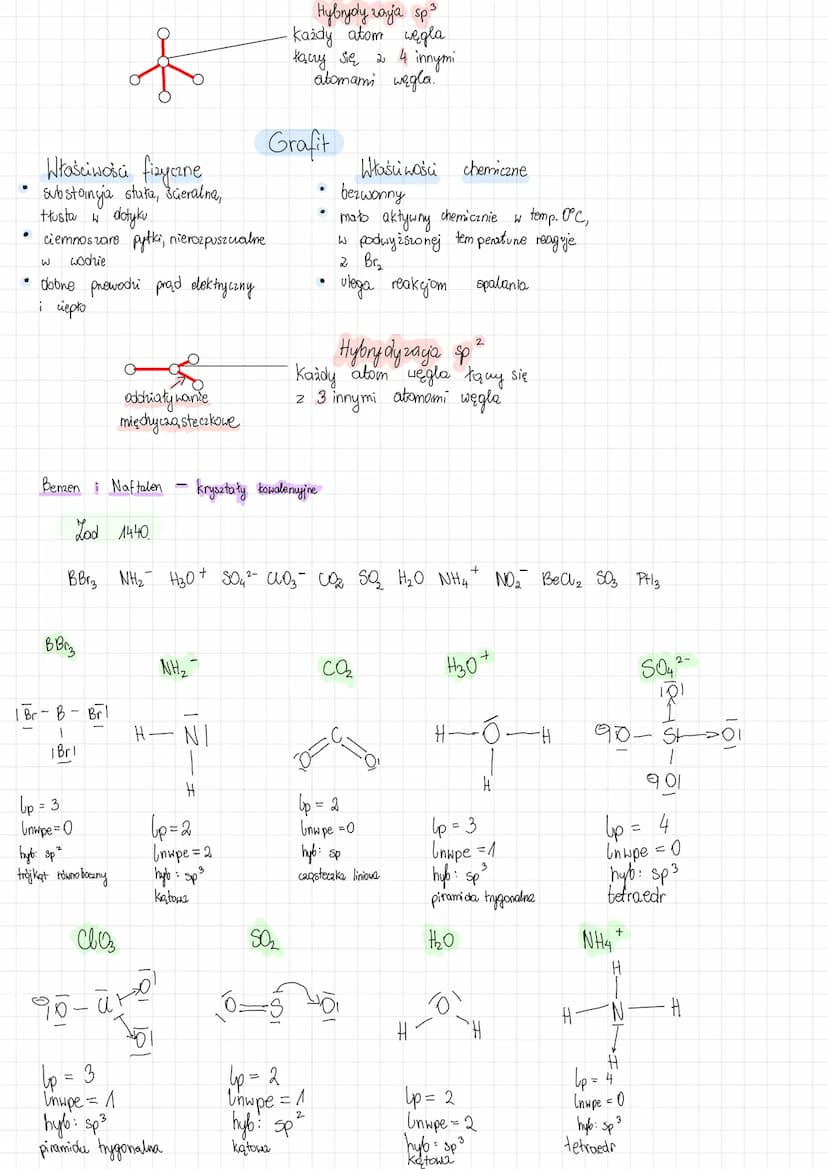 Hybrydyzacja sp³
każdy atom węgla
łączy się z 4 innymi
atomami węgla.
Grafit
Właściwości fizyczne
• substancja stała, ścieralna,
tłusta w dotyku
• ciemnoszare płytki, nierozpuszczalne
w wodzie
• dobrze przewodzi prąd elektryczny
i ciepło
Właściwości chemiczne
• bezwonny
• mało aktywny chemicznie w temp. 0°C,
w podwyższonej temperaturze reaguje
z Br₂
• ulega reakcjom spalania
Hybrydyzacja sp²
Każdy atom węgla łączy się
z 3 innymi atomami węgla
oddziaływanie
międzycząsteczkowe
Benzen i Naftalen – kryształy kowalencyjne
Zad 1440.
BBr₃ NH₂⁻ H₃O⁺ SO₄²⁻ ClO₃⁻ CO₂ SO₂ H₂O NH₄⁺ NO₂⁻ BeCl₂ SO₃ PH₃
BBr₃
|Br – B – Br|
|Br|
lp = 3
lnwpe = 0
hyb: sp²
trójkąt równoboczny
NH₂⁻
H — N|
H
lp = 2
lnwpe = 2
hyb: sp³
kątowa
CO₂
C
O O
lp = 2
lnwpe = 0
hyb: sp
cząsteczka liniowa
H₃O⁺
H — O — H
H
lp = 3
lnwpe = 1
hyb: sp³
piramida trygonalna
SO₄²⁻
|O|
O – S → O|
O|
lp = 4
lnwpe = 0
hyb: sp³
tetraedr
ClO₃
O – Cl
O|
|O|
lp = 3
lnwpe = 1
hyb: sp³
piramida trygonalna
SO₂
O = S O|
lp = 2
lnwpe = 1
hyb: sp²
kątowa
H₂O
O
H H
lp = 2
lnwpe = 2
hyb: sp³
kątowa
NH₄⁺
H
H — N — H
H
lp = 4
lnwpe = 0
hyb: sp³
tetraedr